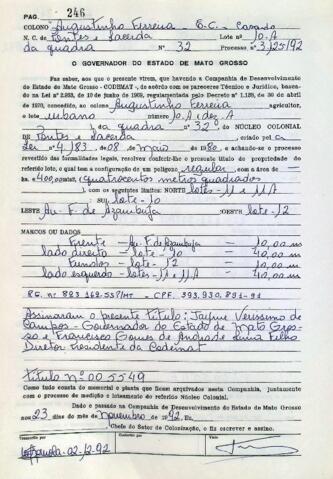 PAG. 246
COLONO Augustinho Ferreira - E.C. - Casado
N. C. de Pontes e Lacerda Lote n.º 10.A
da quadra N.º 32 Processo n.º 3.125/92
O GOVERNADOR DO ESTADO DE MATO GROSSO
Faz saber, aos que o presente virem, que havendo a Companhia de Desenvolvimento
do Estado de Mato Grosso - CODEMAT -, de acordo com os pareceres Técnico e Jurídico, basea-
do na Lei n.º de 10 de junho de regulamentada pelo Decreto n.º de 30 de abril
de 1970, concedido, ao colono Augustinho Ferreira agricultor,
o lote urbano número 10.A (dez A)
da quadra n.º 32 do NÚCLEO COLONIAL
DE Pontes e Lacerda criado pela
Lei n.º 4.183 de 08 de maio de 80 e achando-se o processo
revestido das formalidades legais, resolveu conferir-lhe o presente título de propriedade do
referido lote, o qual tem a configuração de um polígono regular, com a área de
400,00m2 (quatrocentos metros quadrados)
, com os seguintes limites: NORTE lotes - 11 e 11A
SUL lote - 10
LESTE Av. F de Azambuja OESTE lote - 12
MARCOS OU DADOS
Frente - Av. F de Azambuja - 10,00 m
lado direito - lote - 10 - 40,00 m
Fundos - lote - 12 - 10,00 m
lado esquerdo - lotes - 11 e 11.A - 40,00 m
RG. nº 883 168-SSP/MT - CPF. 393.930.891-91
Assinaram o presente título: Jayme Verissimo de
Campos - Governador do Estado de Mato Gros-
so e Francisco Gomes de Andrade Lima Filho
Diretor Presidente da Codemat
Título nº 005549
Tudo como consta do memorial e planta que ficam arquivados nesta Companhia, juntamente
com o processo de medição e loteamento do referido Núcleo Colonial.
Dado e passado na Companhia de Desenvolvimento do Estado de Mato Grosso
aos 23 dias do mês de novembro de 1992. Eu,
Chefe do Setor de Colonização, o fiz escrever e assino.
Transcrito por
Visto
02/12/92